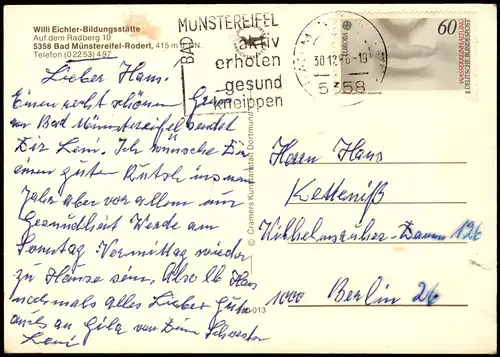 Willi Eichler-Bildungsstätte
Auf dem Radberg 10
5358 Bad Münstereifel-Rodert, 415 m ü. N.N.
Telefon (0 22 53) 497
BAD MÜNSTEREIFEL
aktiv
erholen
gesund
kneippen
30.12.86-10
5358
EUROPA
60
WASSERREINHALTUNG
DEUTSCHE BUNDESPOST
Lieber Hans.
Einen recht schönen Gruß
aus Bad Münstereifel sendet
Dir Leni. Ich wünsche Dir
einen guten Rutsch ins neue
Jahr aber vor allem nur
Gesundheit Werde am
Sonntag Vormittag wieder
zu Hause sein, Also lb Hans
nochmals alles Liebe Gute
auch an Gila von Deine Schwester
Leni
© Cramers Kunstanstalt Dortmund
-013
Herrn Hans
Ketteniß
Wilhelmsruher-Damm 126
1000 Berlin 26